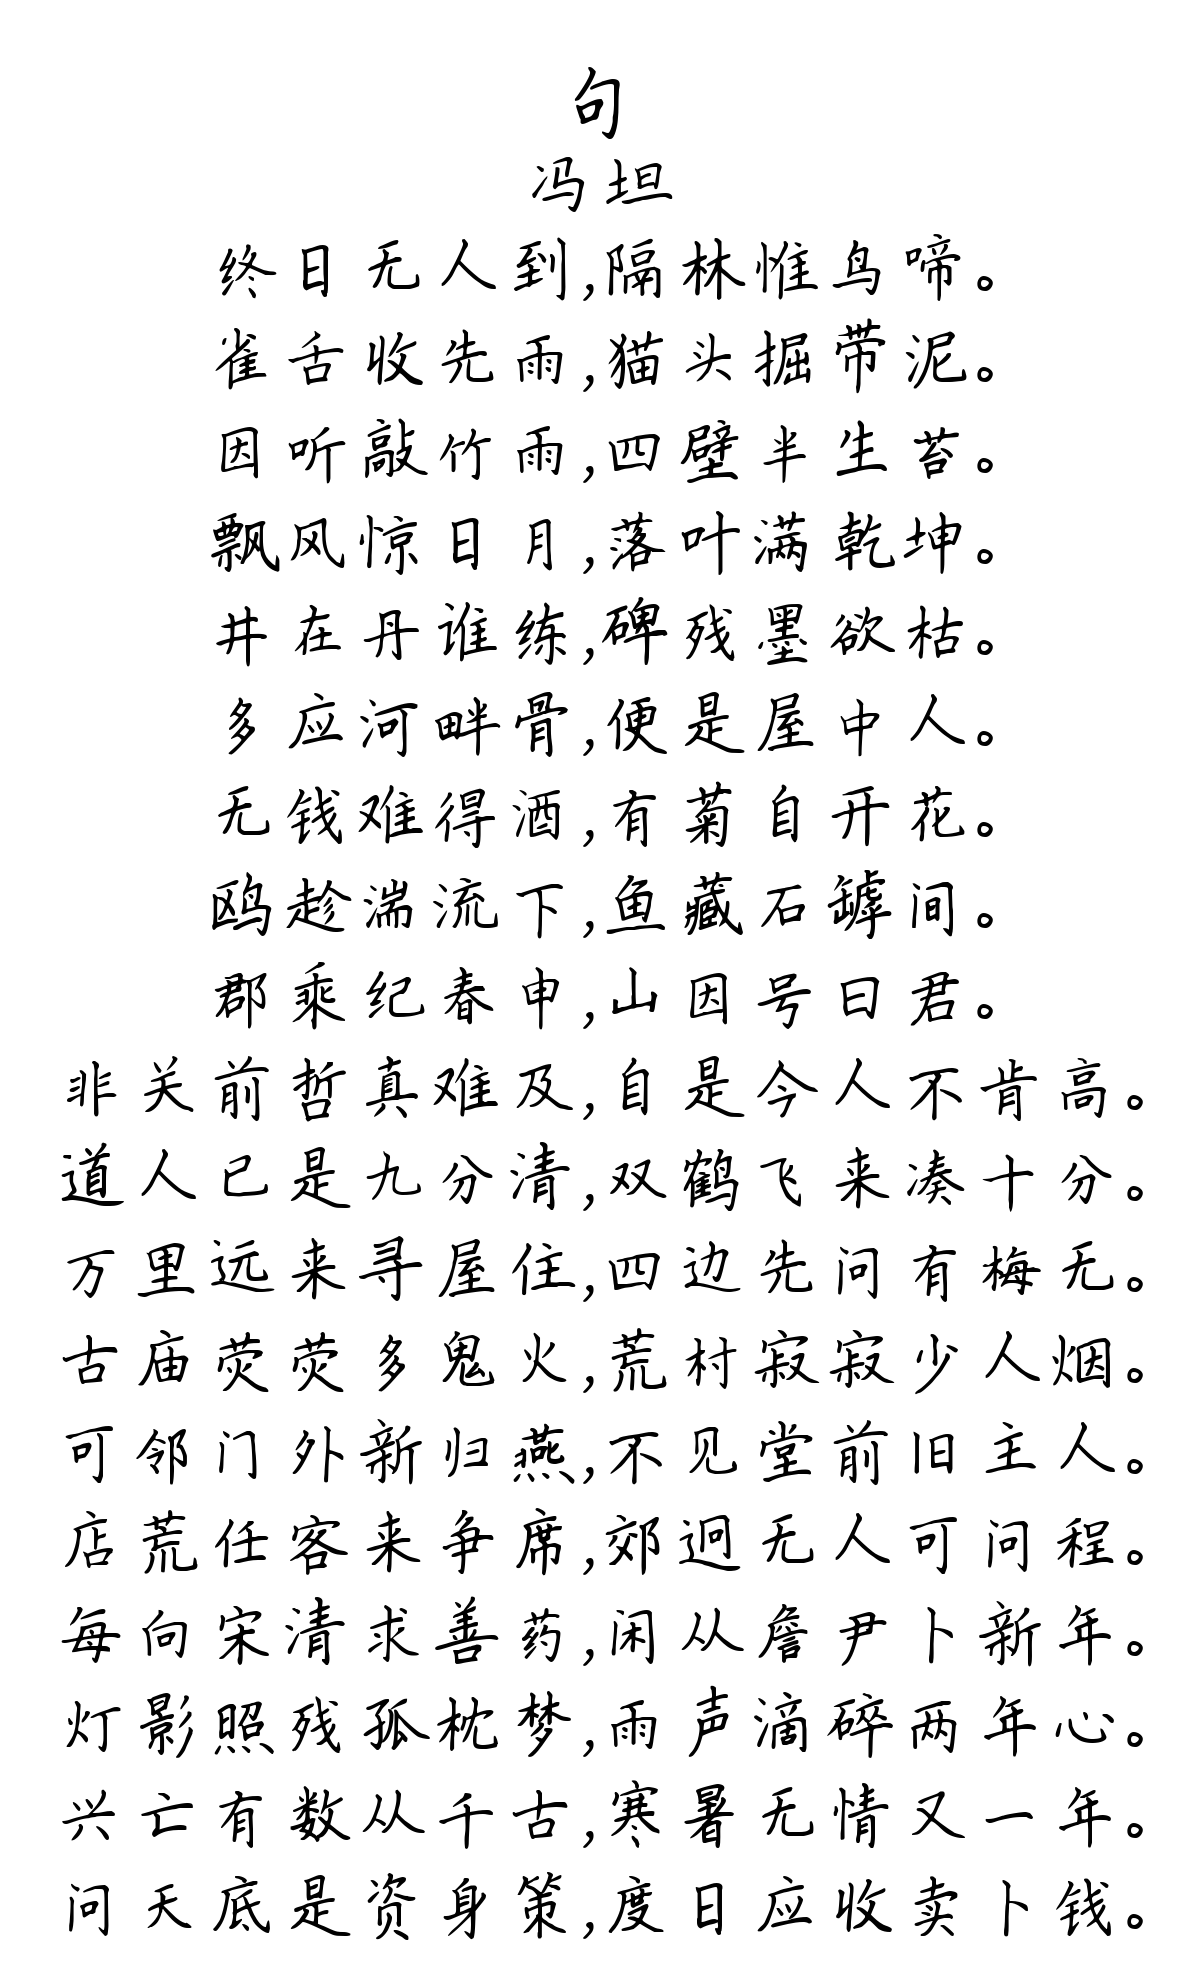 句
冯坦
终日无人到,隔林惟鸟啼。
雀舌收先雨,猫头掘带泥。
因听敲竹雨,四壁半生苔。
飘风惊日月,落叶满乾坤。
井在丹谁练,碑残墨欲枯。
多应河畔骨,便是屋中人。
无钱难得酒,有菊自开花。
鸥趁湍流下,鱼藏石罅间。
郡乘纪春申,山因号曰君。
非关前哲真难及,自是今人不肯高。
道人已是九分清,双鹤飞来凑十分。
万里远来寻屋住,四边先问有梅无。
古庙荧荧多鬼火,荒村寂寂少人烟。
可邻门外新归燕,不见堂前旧主人。
店荒任客来争席,郊迥无人可问程。
每向宋清求善药,闲从詹尹卜新年。
灯影照残孤枕梦,雨声滴碎两年心。
兴亡有数从千古,寒暑无情又一年。
问天底是资身策,度日应收卖卜钱。